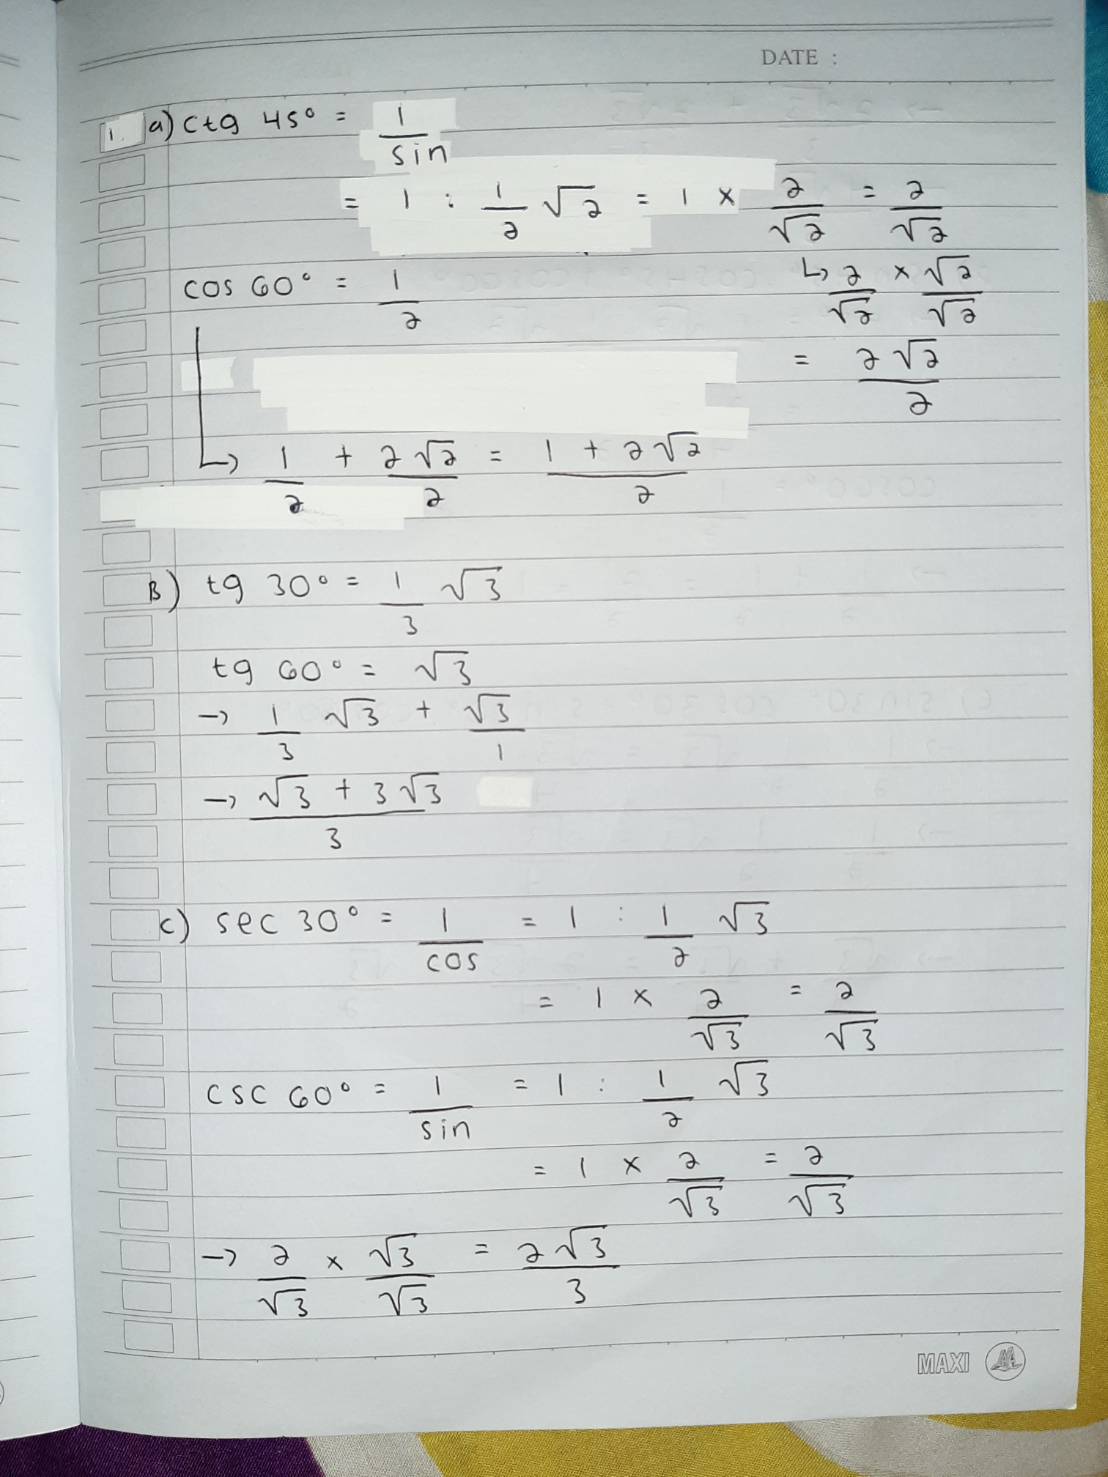 DATE :
1. a) ctg 45° = 1/sin
= 1 : 1/2 √2 = 1 × 2/√2 = 2/√2
cos 60° = 1/2
↳ 2/√2 × √2/√2
= 2√2/2
↳ 1/2 + 2√2/2 = 1 + 2√2/2
B) tg 30° = 1/3 √3
tg 60° = √3
→ 1/3 √3 + √3/1
→ √3 + 3√3/3
c) sec 30° = 1/cos = 1 : 1/2 √3
= 1 × 2/√3 = 2/√3
csc 60° = 1/sin = 1 : 1/2 √3
= 1 × 2/√3 = 2/√3
→ 2/√3 × √3/√3 = 2√3/3
MAXI